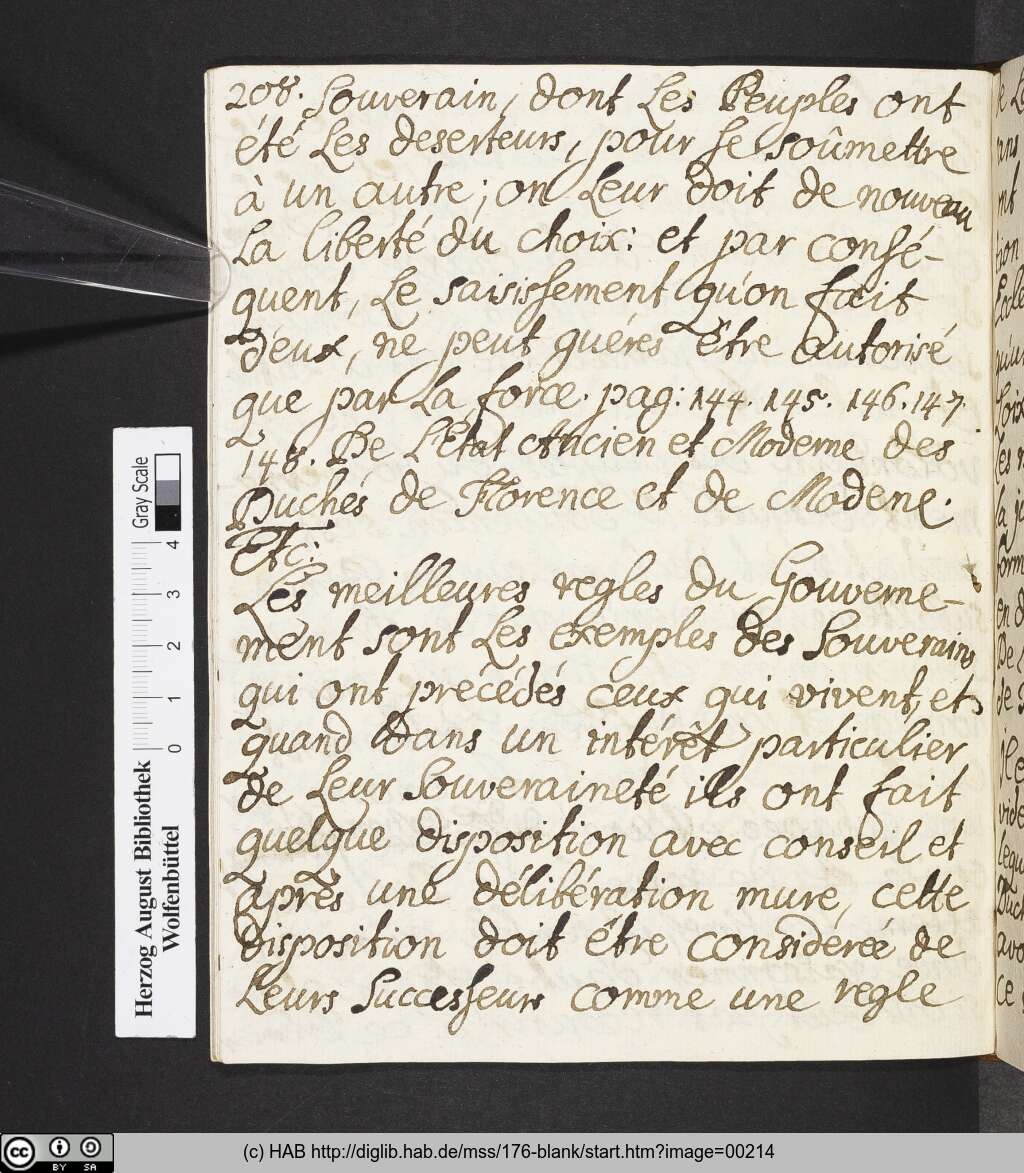 208. Souverain, dont Les Peuples ont
été Les deserteurs, pour se soûmettre
à un autre; on Leur doit de nouveau
La liberté du choix: et par consé-
quent, Le saisissement qu'on fait
d'eux, ne peut guéres être autorisé
que par La force. pag: 144. 145. 146. 147.
148. De L'Etat Ancien et Moderne des
Duchés de Florence et de Modene.
Etc:
Les meilleures regles du Gouverne-
ment sont Les exemples des Souverains
qui ont précédés ceux qui vivent, et
quand dans un intérêt particulier
de Leur Souveraineté ils ont fait
quelque disposition avec conseil et
après une délibération mure, cette
disposition doit être considerée de
Leurs Successeurs comme une regle
Herzog August Bibliothek
Wolfenbüttel
Gray Scale
0 1 2 3 4
cc BY SA
(c) HAB http://diglib.hab.de/mss/176-blank/start.htm?image=00214